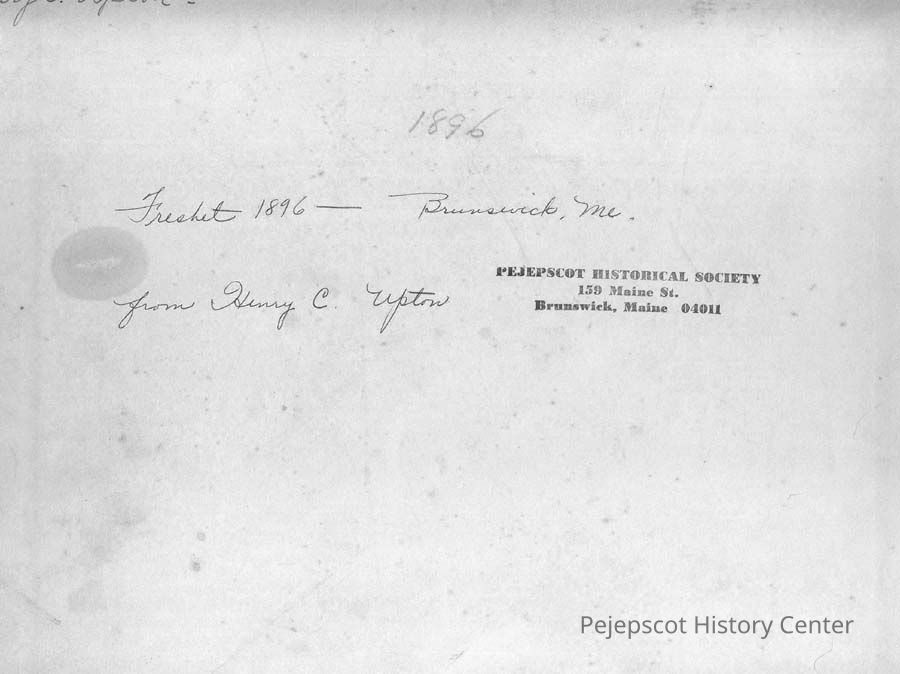 1896
Freshet 1896 — Brunswick, Me.
from Henry C. Upton
PEJEPSCOT HISTORICAL SOCIETY
159 Maine St.
Brunswick, Maine 04011
Pejepscot History Center